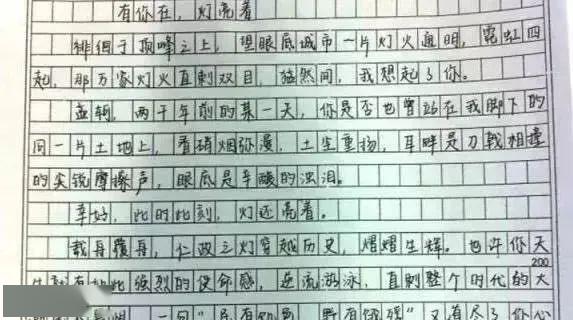 有你在，灯亮着
徘徊于顶峰之上，望眼底城市一片灯火通明，霓虹四
起，那万家灯火直刺双目，猛然间，我想起了你。
孟轲，两千年前的某一天，你是否也曾站在我脚下的
同一片土地上，看硝烟弥漫，土尘重扬，耳畔是刀戟相撞
的尖锐摩擦声，眼底是辛酸的浊泪。
幸好，此时此刻，灯还亮着。
载舟覆舟，仁政之灯穿越历史，熠熠生辉。也许你天
生就有如此强烈的使命感，逆流游泳，直刺整个时代的大
200
一句“民有饥色，野有饿殍”又道尽了你心